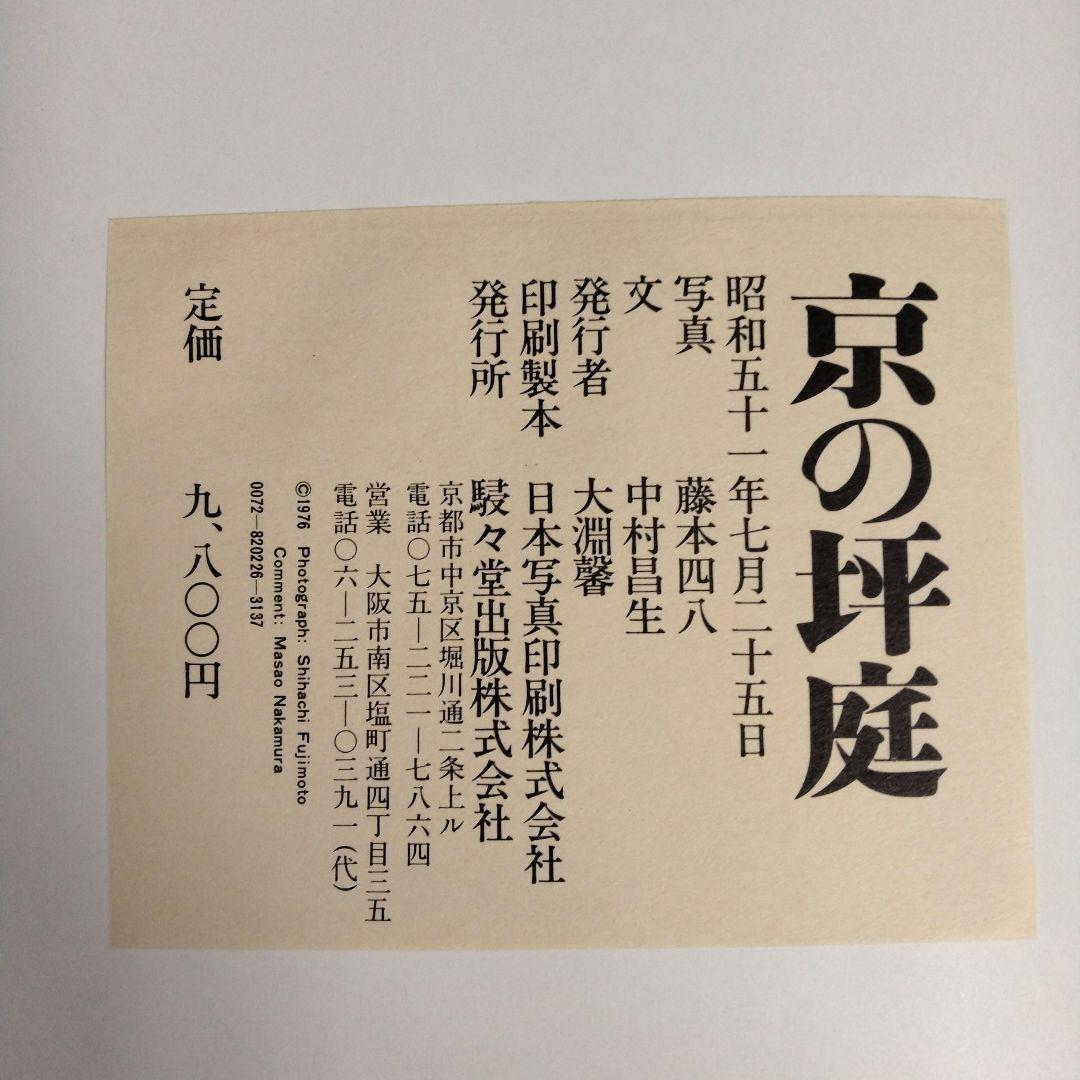 京の坪庭
昭和五十一年七月二十五日
写真 藤本四八
文 中村昌生
発行者 大淵馨
印刷製本 日本写真印刷株式会社
発行所 駸々堂出版株式会社
京都市中京区堀川通二条上ル
電話〇七五―二二一―七八六四
営業 大阪市南区塩町通四丁目三五
電話〇六―二五三―〇三九一(代)
©1976 Photograph: Shihachi Fujimoto
Comment: Masao Nakamura
0072―820226―3137
定価 九、八〇〇円